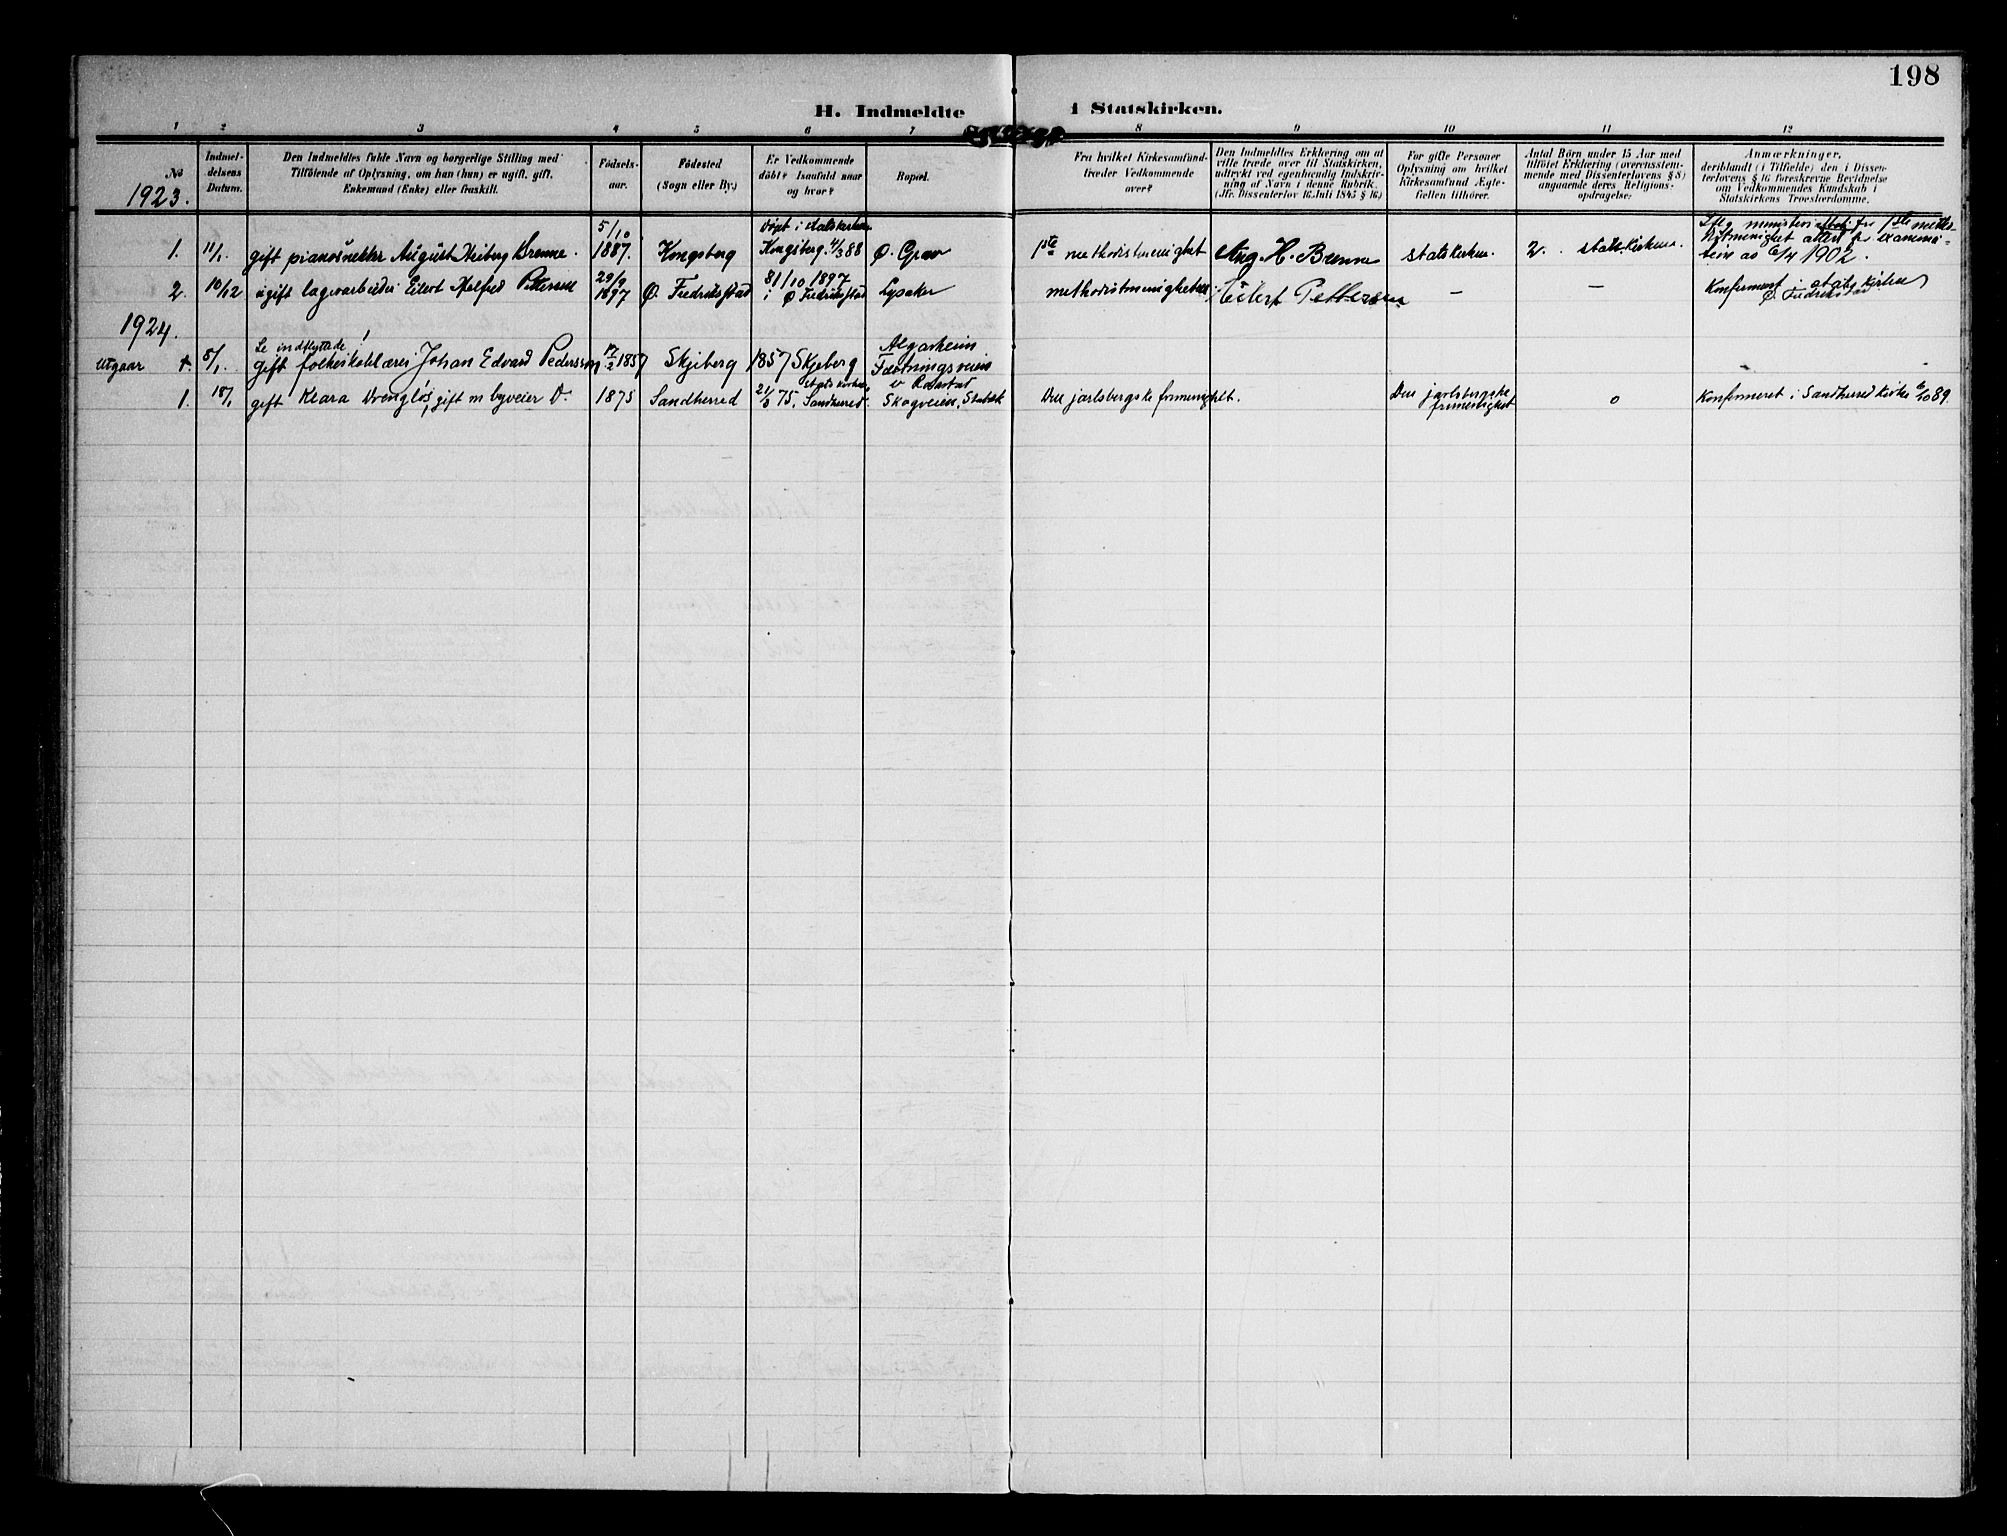 198
H. Indmeldte i Statskirken.
1 2 3 4 5 6 7 8 9 10 11 12
No
Indmel-
delsens
Datum.
Den Indmeldtes fulde Navn og borgerlige Stilling med
Tilföiende af Oplysning, om han (hun) er ugift, gift,
Enkemand (Enke) eller fraskilt.
Födsels-
aar.
Födested
(Sogn eller By.)
Er Vedkommende
döbt? Isaafald naar
og hvor?
Bopæl.
Fra hvilket Kirkesamfund
træder Vedkommende
over?
Den Indmeldtes Erklæring om at
ville træde over til Statskirken,
udtrykt ved egenhændig Indskriv-
ning af Navn i denne Rubrik.
(Jfr. Dissenterlov 16 Juli 1845 § 16.)
For gifte Personer
Oplysning om hvilket
Kirkesamfund Ægte-
fællen tilhörer.
Antal Börn under 15 Aar med
tilföiet Erklæring (overensstem-
mende med Dissenterlovens § 8)
angaaende deres Religions-
opdragelse.
Anmærkninger,
deriblandt (i Tilfælde) den i Dissen-
terlovens § 16 foreskrevne Bevidnelse
om Vedkommendes Kundskab i
Statskirkens Troeslærdomme.
1923.
1. 11/1. gift August Heiberg Brenne. 5/10 1887. Kongsberg døpt i statskirken Kongsberg 4/3 88 Ø. Grav 1ste methodistmenighet Aug. H. Brenne statskirken. 2. statskirken. 1902.
2. 10/12 ugift lagerarbeider Eilert Pettersen 29/9 1897 Ø. Fredrikstad 31/10 1897 i Ø. Fredrikstad Lysaker methodistmenigheten Eilert Pettersen — — Konfirmert i statskirken Ø. Fredrikstad
1924.
utgaar 8/1. Se indflyttede! gift folkeskolelærer Johan Edvard Pedersen 17/2 1857 Skjeberg 1857 Skjeberg Algarheim Fæstningsveien v Rolfstad
1. 18/1 gift Klara Drengløs, gift m byveier D. 1875 Sandherred 21/3 75. Statskirken Sandherred. Skogveien, Stabæk Den jarlsbergske frimenighet. Den jarlsbergske frimenighet 0 Konfirmeret i Sandherred kirke 6/10 89.